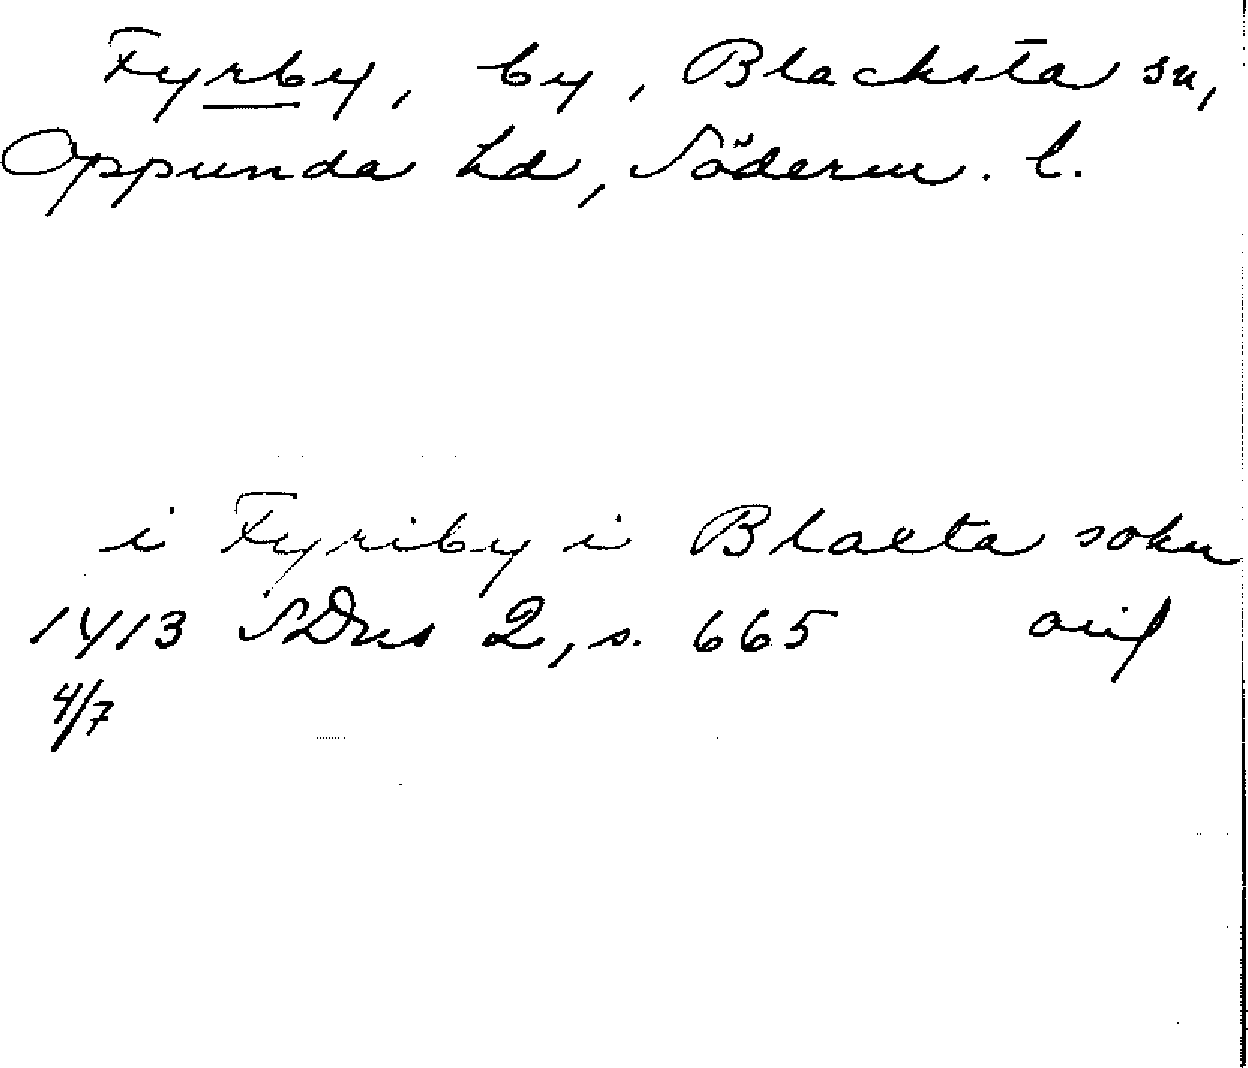 Fyrby, by, Blacksta sn,
Oppunda hd, Söderm. l.
i Fyriby i Blacta sokn
1413 SDns 2, s. 665 avif
4/7